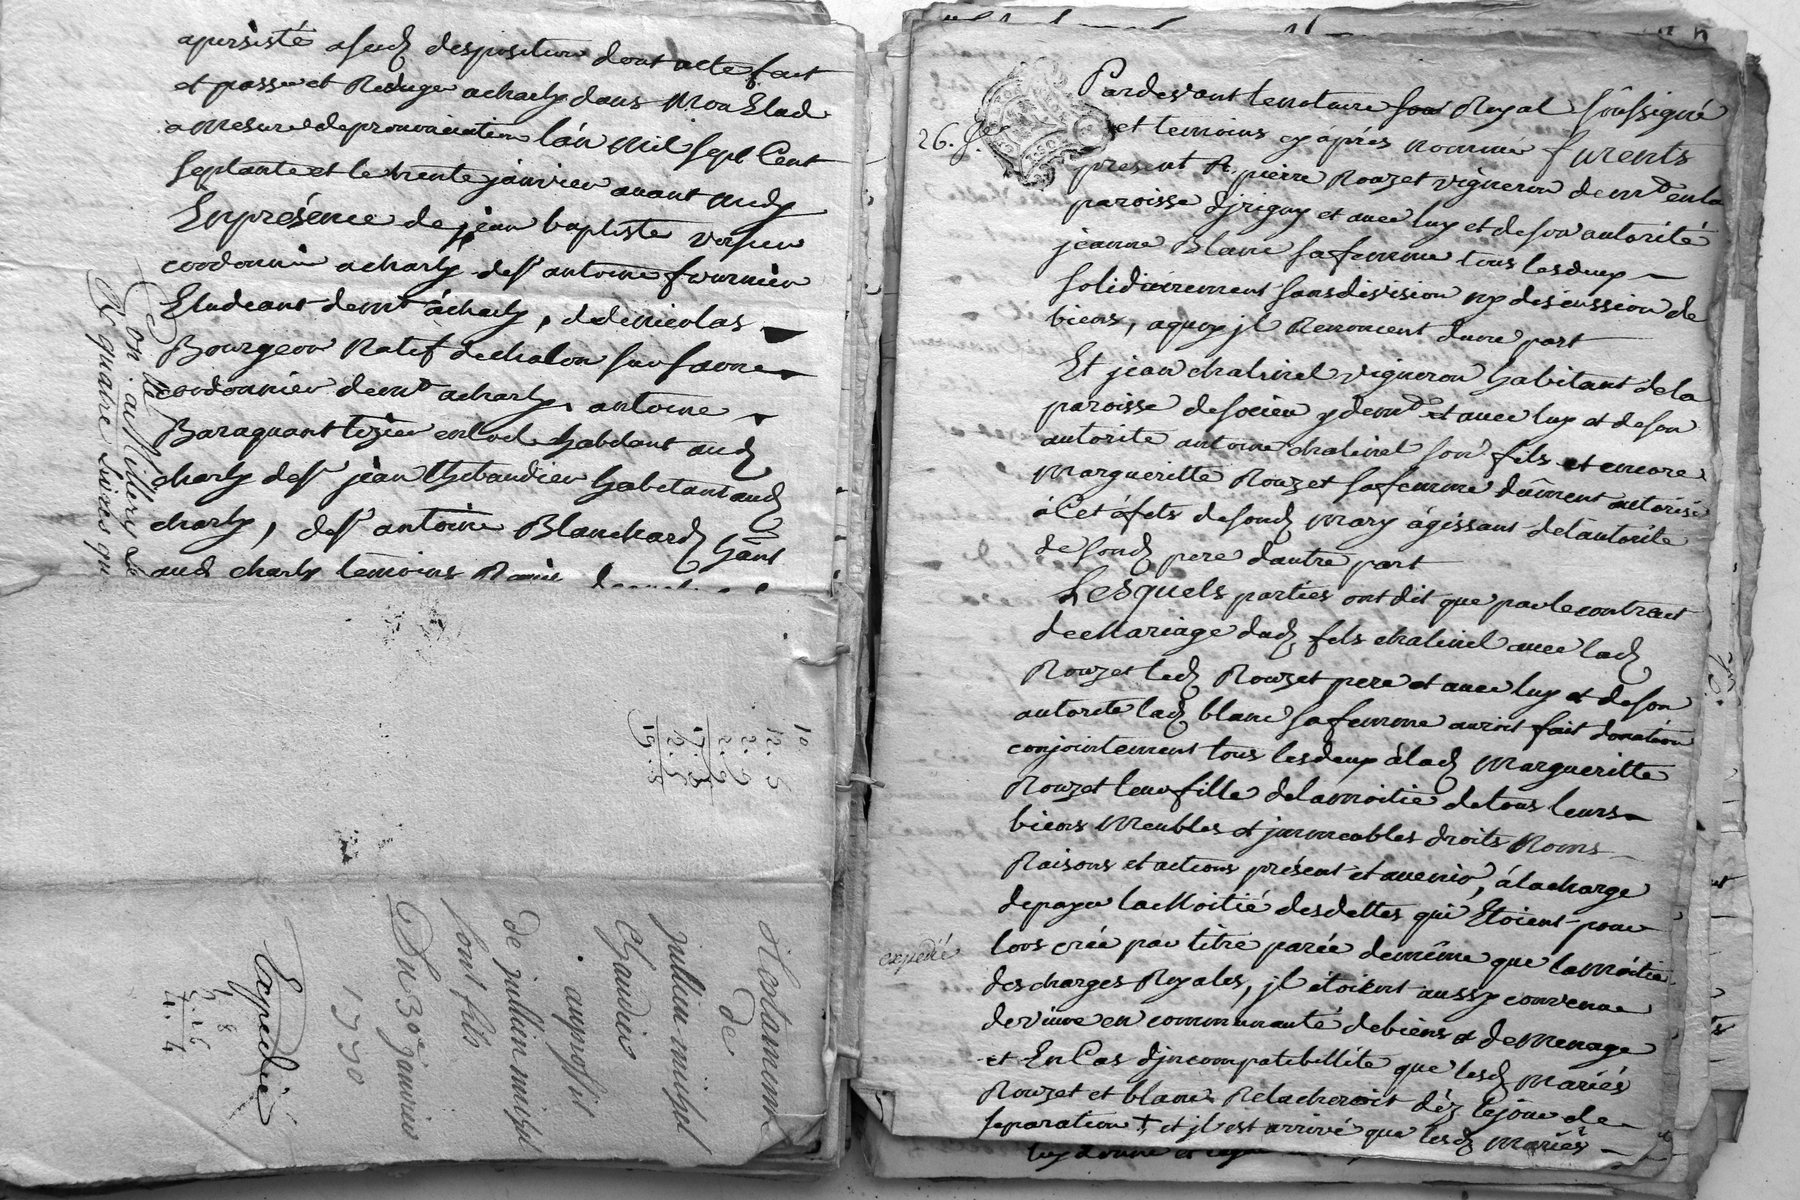 apersisté a sud disposition dont acte fait
et passé et Redigé acharly dans Mon Etude
a mesure de prononciation l'an Mil Sept Cent
septante et le trente janvier avant midy
En présence de jean baptiste
cordonnier a charly, de sr antoine fournier
Etudiant demt à charly, de nicolas
Bourgeon Natif de chalon sur saone
cordonnier demt a charly, antoine
Baraquant tixier en habitant aud
charly de sr jean thibaudier habitant aud
charly, de sr antoine Blanchard
aud charly temoins
Con. a Millery
R. quatre Livres
10
12. 5
2. 9
2. 9
17. 5
2. 5
19. 5
Testament
de
jullien michel
Chaudier
au proffit
de jullien michel
sont fils
Du 30e janvier
1770
Expedié
8
7. 4
26.
Pardevant le notaire Royal soussigné
et temoins cy après nommé furents
present sr. pierre Rouzet vigneron demt en la
paroisse d'jrigny et avec luy et de son autorité
jeanne Blanc sa femme tous les deux
solidairement sans division ny discussion de
biens, a quoy jl Renoncent d'une part
Et jean chalinel vigneron habitant de la
paroisse de socieu y demt et avec luy et de son
autorite antoine chalinel son fils et encore
margueritte Rouzet sa femme dûment autorisé
à Cet éfets de soud mary agissant de l'autorité
de soud pere d'autre part
Lesquels parties ont dit que par le contract
de Mariage dud fils chalinel avec lad
Rouzet led Rouzet pere et avec luy et de son
autorité lad blanc sa femme auroit fait donation
conjointement tous les deux à lad margueritte
Rouzet leur fille de la moitié de tous leurs
biens Meubles et jmmeubles droits Noms
Raisons et actions présent et avenir, à la charge
de payer la Moitié des dettes qui Etoient pour
lors crée par titre parée de même que la moitié
expedié
des charges Royales, jl étoient aussy convenue
de vivre en communauté de biens et de menage
et En Cas d'jncompatibillité que lesd mariés
Rouzet et blanc Relacheroit dèz le jour de
separation et jl est arrivé que lesd mariés